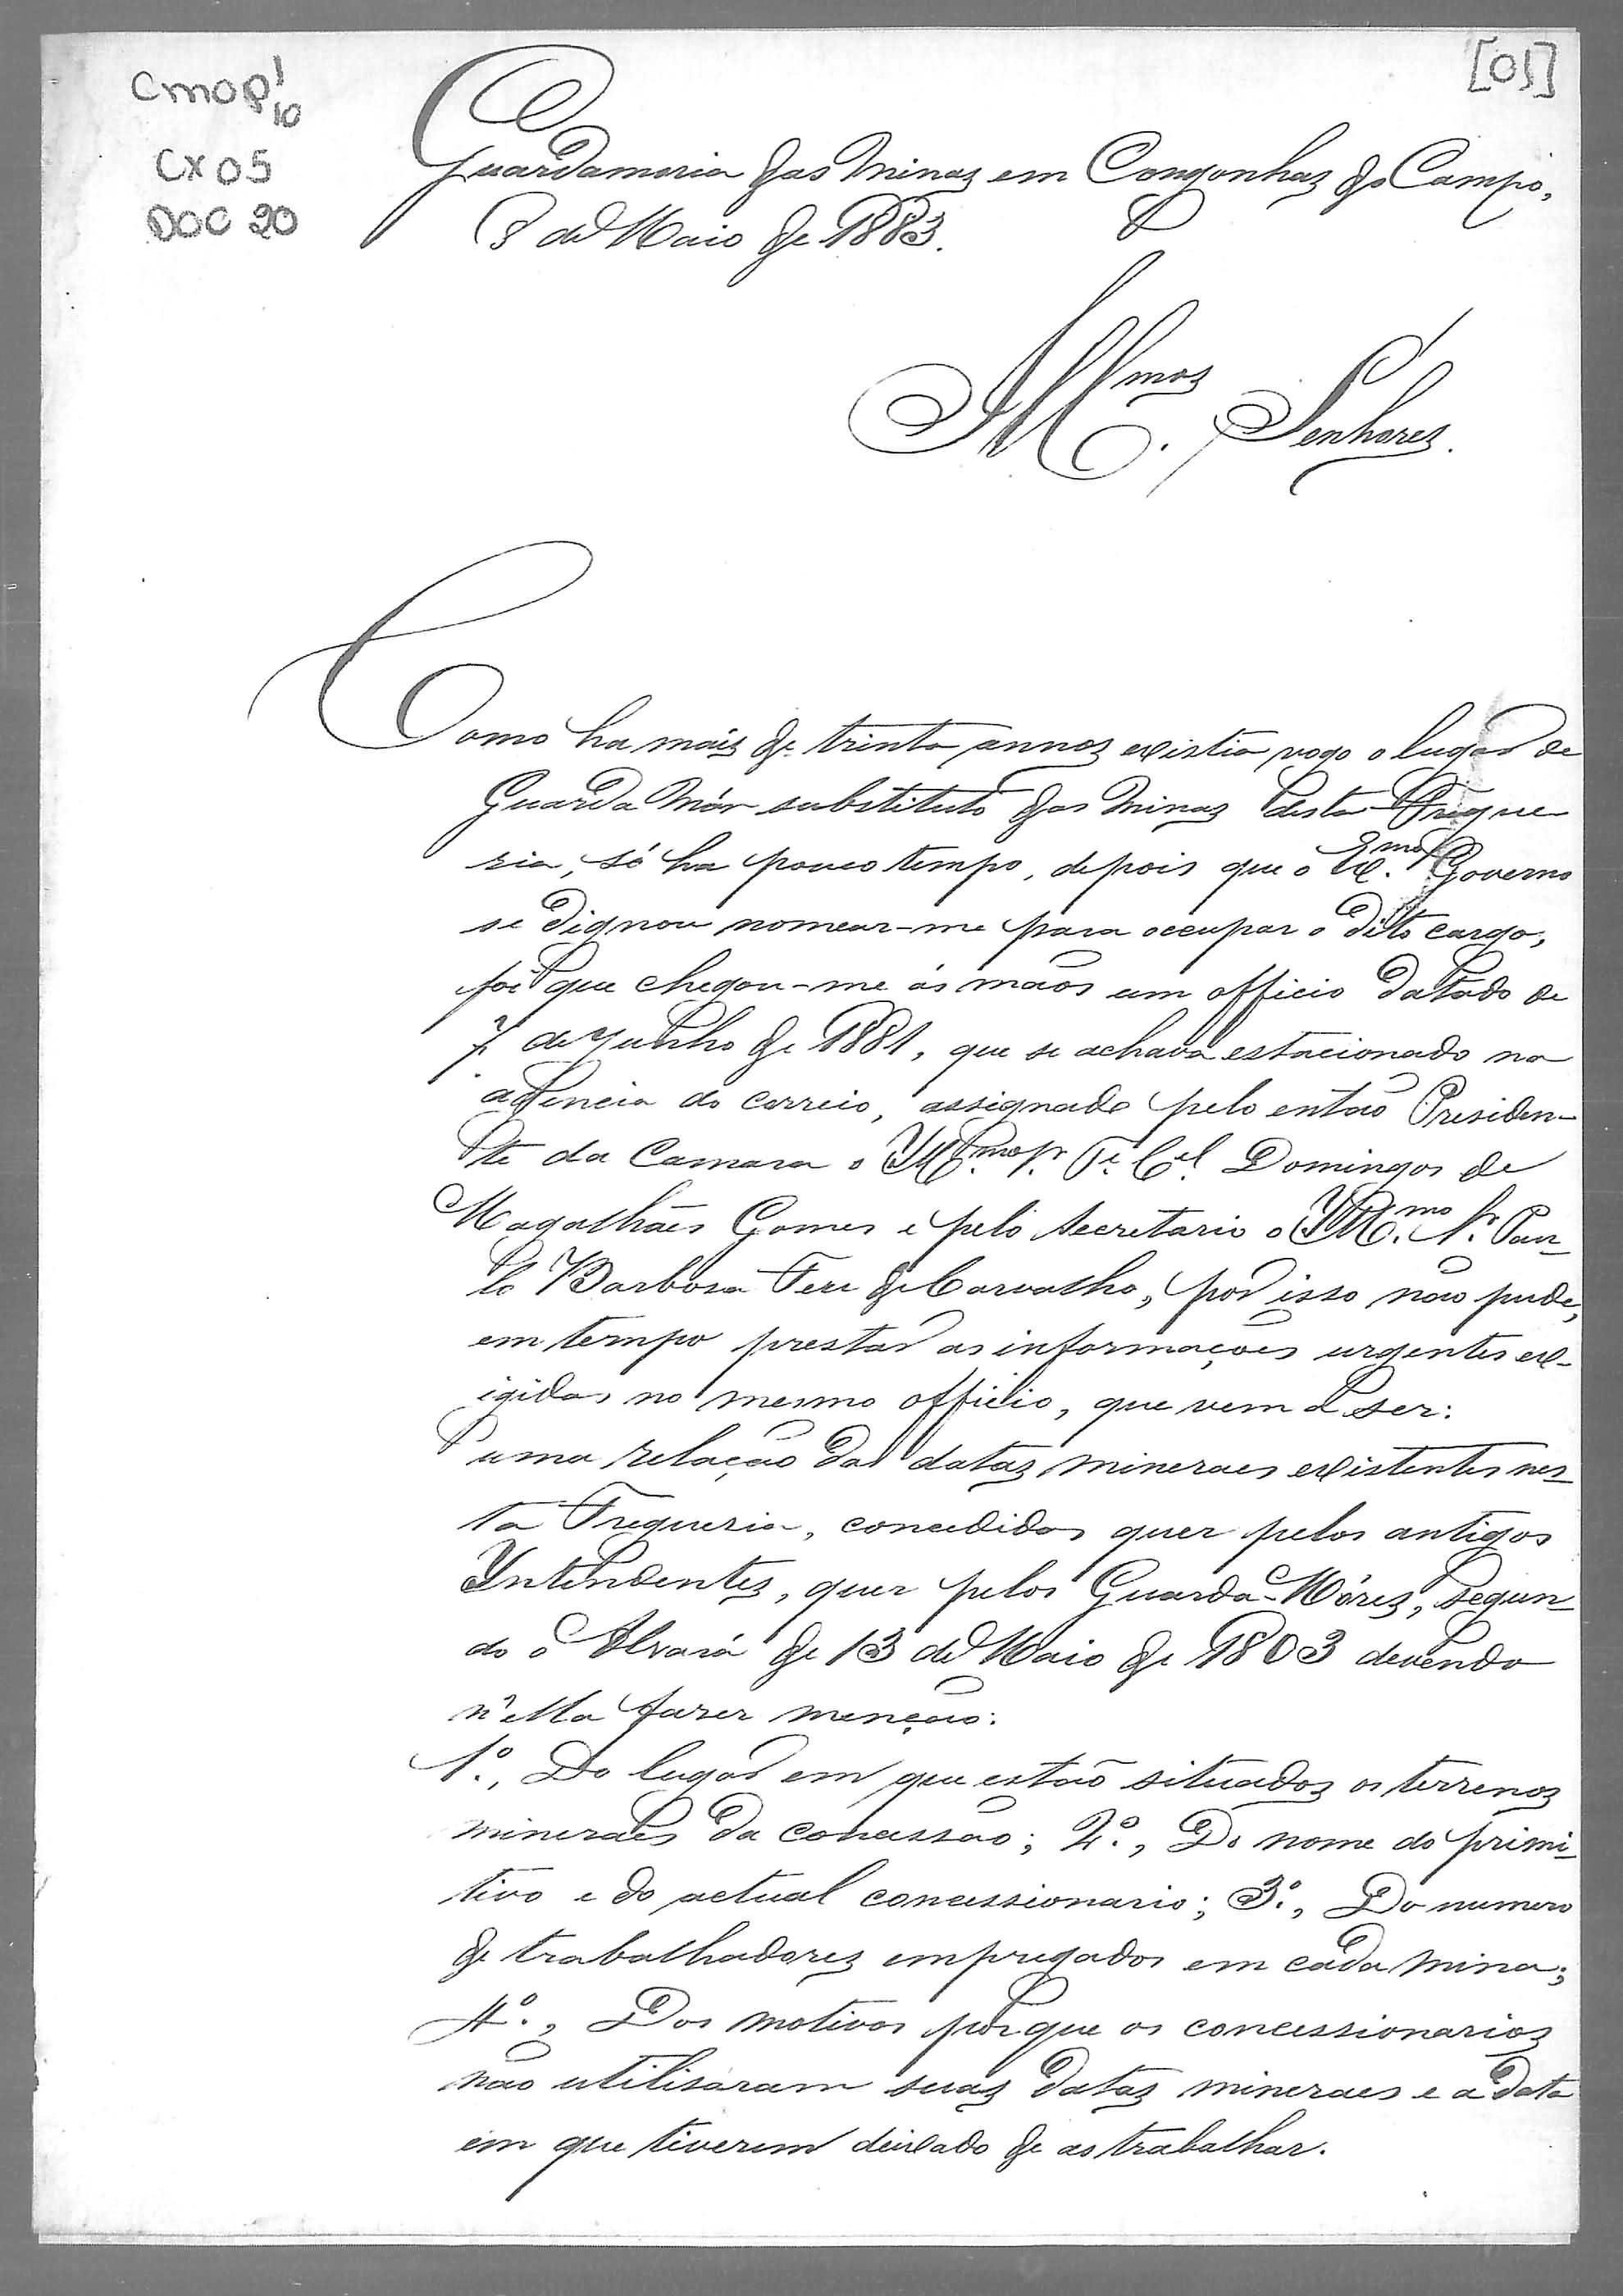 [01]
CMOP 1/10
CX 05
DOC 20
Guardamoria das Minas em Congonhas do Campo,
8 de Maio de 1883.
Illmos. Senhores.
Como ha mais de trinta annos existia vago o lugar de
Guarda Mór substituto das Minas desta Fregue
sia, só ha pouco tempo, depois que o Exmo. Governo
se dignou nomear-me para occupar o dito cargo,
foi que chegou-me ás mãos um officio datado de
7 de Junho de 1881, que se achava estacionado na
agencia do correio, assignado pelo então Presiden-
te da Camara o Illmo. Sr. Te. Cel. Domingos de
Magalhães Gomes e pelo Secretario o Illmo. Sr. Pau-
lo Barbosa de Carvalho, por isso não pude,
em tempo prestar as informações urgentes ex-
igidas no mesmo officio, que vem a ser:
uma relação das datas mineraes existentes nes-
ta Freguesia, concedidas quer pelos antigos
Intendentes, quer pelos Guarda-Móres, segun-
do o Alvará de 13 de Maio de 1803 devendo
n'ella fazer menção:
1º., Do lugar em que estão situados os terrenos
mineraes da concessão; 2º., Do nome do primi-
tivo e do actual concessionario; 3º., Do numero
de trabalhadores empregados em cada mina;
4º., Dos motivos porque os concessionarios
não utilisáram suas datas mineraes e a data
em que tiverem deixado de as trabalhar.